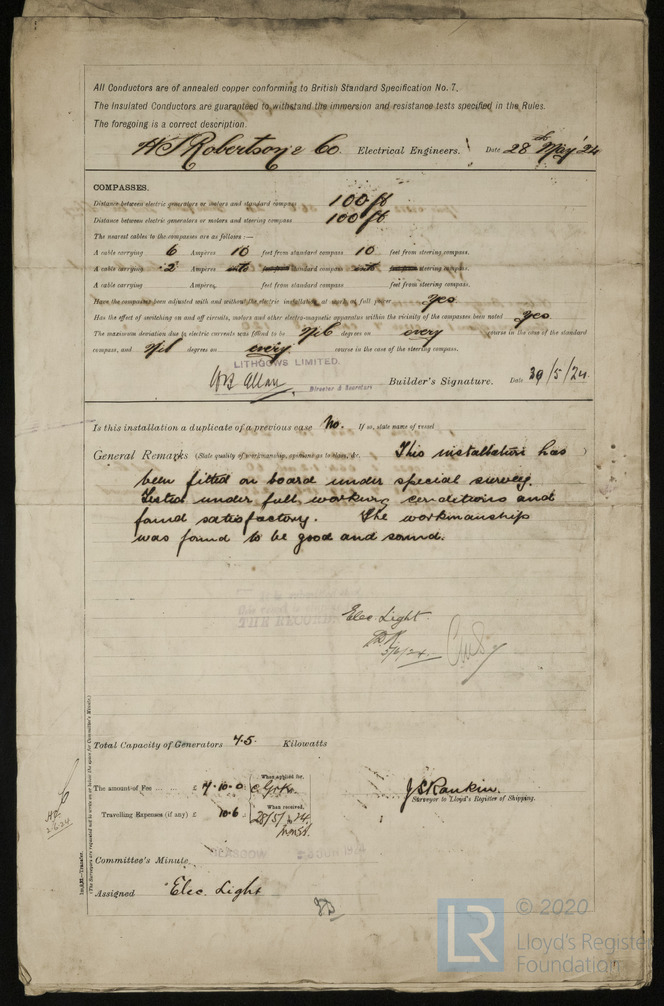 All Conductors are of annealed copper conforming to British Standard Specification No. 7.
The Insulated Conductors are guaranteed to withstand the immersion and resistance tests specified in the Rules.
The foregoing is a correct description.
Robertson & Co. Electrical Engineers. Date 28th May '24
COMPASSES.
Distance between electric generators or motors and standard compass 100 ft
Distance between electric generators or motors and steering compass 100 ft
The nearest cables to the compasses are as follows:—
A cable carrying 6 Amperes 10 feet from standard compass 10 feet from steering compass.
A cable carrying .2 Amperes into standard compass into steering compass.
A cable carrying Amperes feet from standard compass feet from steering compass.
Have the compasses been adjusted with and without the electric installation at work at full power yes
Has the effect of switching on and off circuits, motors and other electro-magnetic apparatus within the vicinity of the compasses been noted yes
The maximum deviation due to electric currents was found to be Nil degrees on every course in the case of the standard
compass, and Nil degrees on every course in the case of the steering compass.
LITHGOWS LIMITED.
Allan Director & Secretary Builder's Signature. Date 30/5/24.
Is this installation a duplicate of a previous case No. If so, state name of vessel
General Remarks (State quality of workmanship, opinions as to class, &c. This installation has
been fitted on board under special survey.
Tested under full working conditions and
found satisfactory. The workmanship
was found to be good and sound.
Elec. Light
5/6/24
Total Capacity of Generators 4.5 Kilowatts
The amount of Fee ... £ 4.10.0 When applied for,
Travelling Expenses (if any) £ 10.6 When received,
J S Rankin.
Surveyor to Lloyd's Register of Shipping.
2.6.24
(The Surveyors are requested not to write on or below the space for Committee's Minute.)
Transfer.
GLASGOW
Committee's Minute
Assigned Elec. Light
LR
© 2020
Lloyd's Register
Foundation